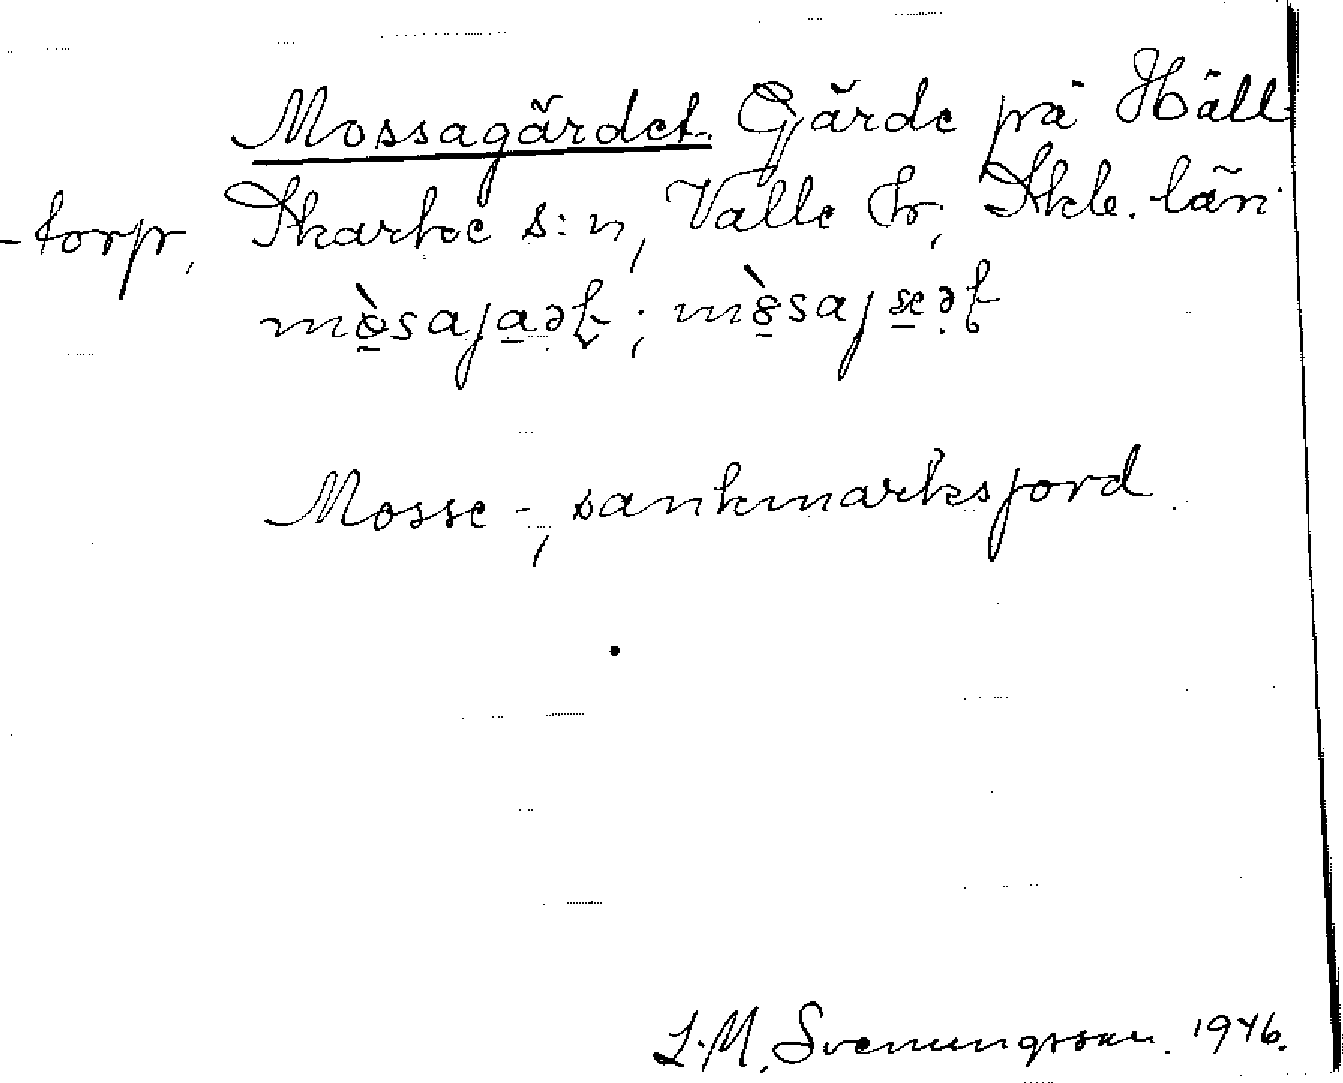 Mossagärdet. Gärde på Häll-
-torp, Skarke s:n, Valle hr, Skb. län
Mosse-, sankmarksjord.
L. M. Svenungsson. 1946.